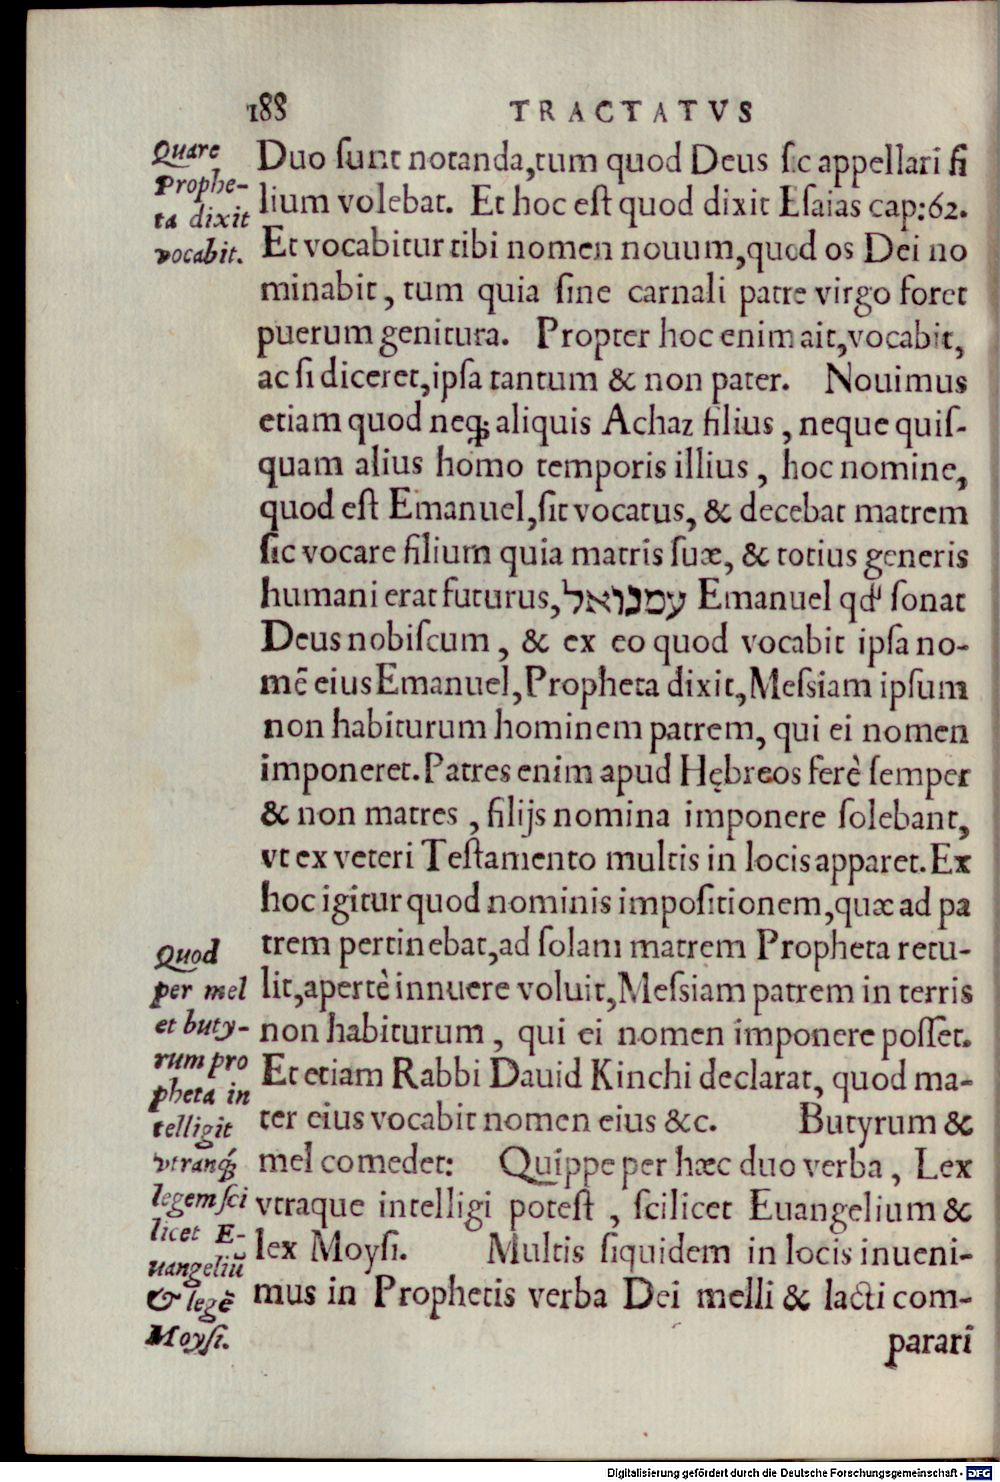 188 TRACTATVS
Quare
Prophe-
ta dixit
vocabit.
Duo ſunt notanda,tum quod Deus ſic appellari fi
lium volebat. Et hoc eſt quod dixit Eſaias cap:62.
Et vocabitur tibi nomen nouum,quod os Dei no
minabit, tum quia ſine carnali patre virgo foret
puerum genitura. Propter hoc enim ait,vocabit,
ac ſi diceret,ipſa tantum & non pater. Nouimus
etiam quod neq; aliquis Achaz filius, neque quiſ-
quam alius homo temporis illius, hoc nomine,
quod eſt Emanuel,ſit vocatus, & decebat matrem
ſic vocare filium quia matris ſuæ, & totius generis
humani erat futurus,עמנואל Emanuel qd' ſonat
Deus nobiſcum, & ex eo quod vocabit ipſa no-
mē eius Emanuel,Propheta dixit,Meſsiam ipſum
non habiturum hominem patrem, qui ei nomen
imponeret.Patres enim apud Hębreos ferè ſemper
& non matres, filijs nomina imponere ſolebant,
vt ex veteri Teſtamento multis in locis apparet.Ex
hoc igitur quod nominis impoſitionem,quæ ad pa
trem pertinebat,ad ſolam matrem Propheta retu-
lit,apertè innuere voluit,Meſsiam patrem in terris
non habiturum, qui ei nomen imponere poſſet.
Et etiam Rabbi Dauid Kinchi declarat, quod ma-
ter eius vocabit nomen eius &c. Butyrum &
mel comedet: Quippe per hæc duo verba, Lex
vtraque intelligi poteſt, ſcilicet Euangelium &
lex Moyſi. Multis ſiquidem in locis inueni-
mus in Prophetis verba Dei melli & lacti com-
parari
Quod
per mel
et buty-
rum pro
pheta in
telligit
vtranq;
legem ſci
licet E-
uangeliū
& legē
Moyſi.
Digitalisierung gefördert durch die Deutsche Forschungsgemeinschaft - DFG